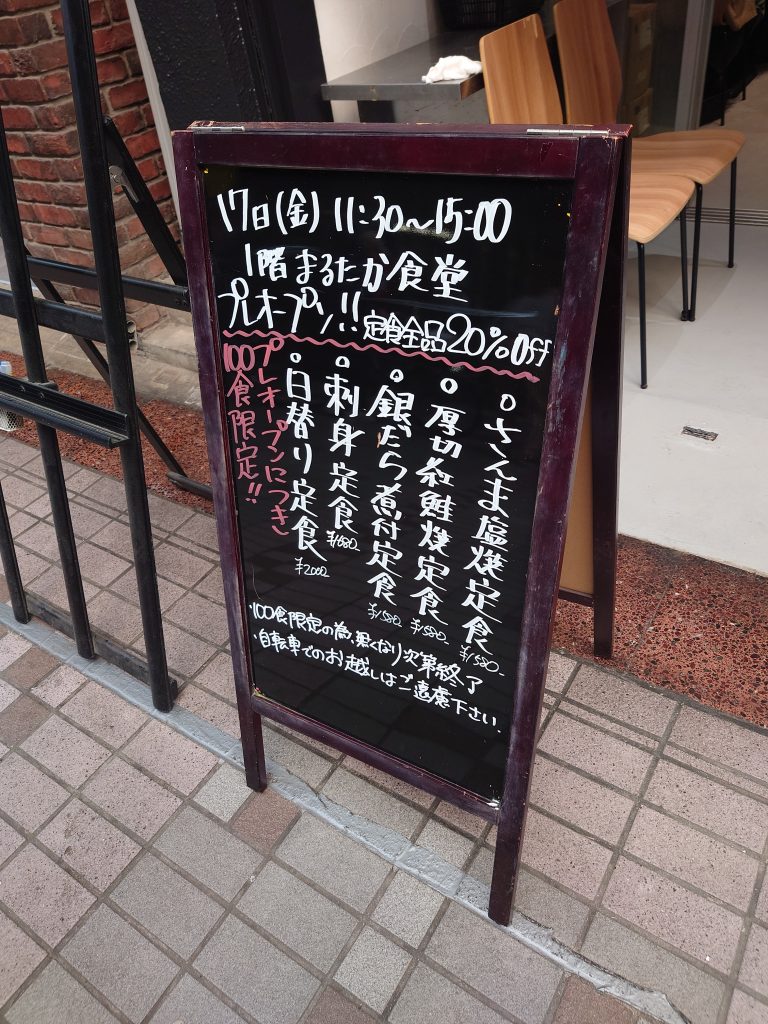 17日(金) 11:30〜15:00
1階 まるたか食堂
プレオープン!! 定食全品20%Off
○さんま塩焼定食 ¥1580-
○厚切紅鮭焼定食 ¥1580-
○銀だら煮付定食 ¥1580-
○刺身定食 ¥1680-
○日替り定食 ¥2000
プレオープンにつき
100食限定!!
・100食限定の為、無くなり次第終了
・自転車でのお越しはご遠慮下さい.